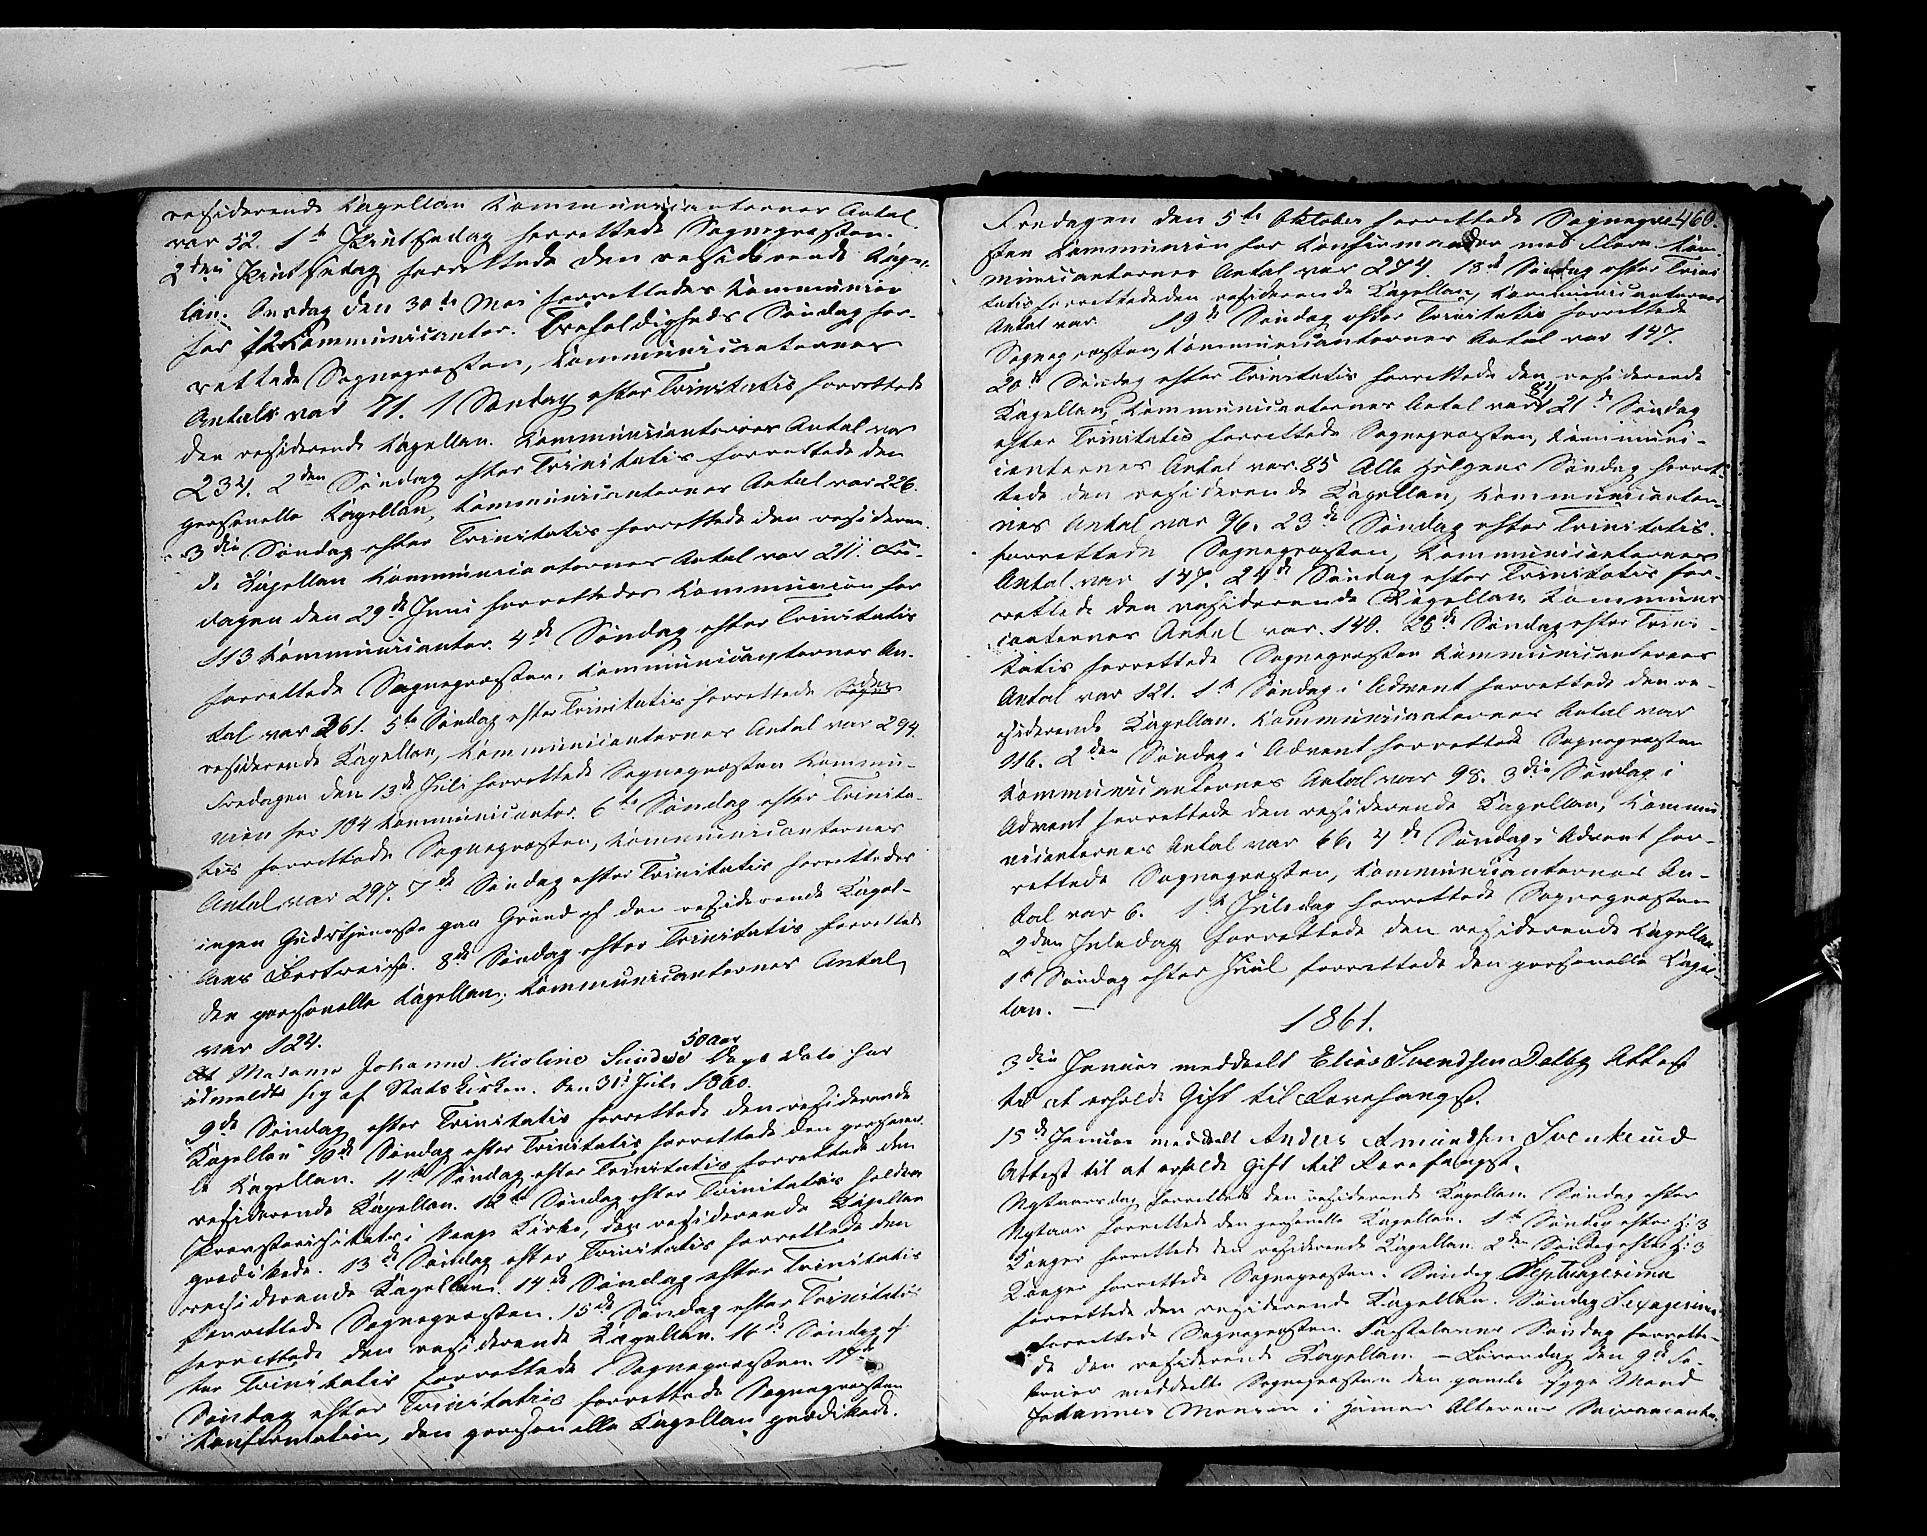 residerende Capellan Communicanternes Antal
var 52. 1ste Pintsedag forrettede Sognepræsten.
2den Pintsedag forrettede den residerende Capel-
lan. Onsdag den 30te Mai forrettedes Communion
for 12 Communicanter. Trefoldigheds Søndag for-
rettede Sognepræsten, Communicanternes
Antal var 71. 1 Søndag efter Trinitatis forrettede
den residerende Capellan. Communicanternes Antal var
234. 2den Søndag efter Trinitatis forrettede den
personelle Capellan, Communicanternes Antal var 226.
3die Søndag efter Trinitatis forrettede den residerend
de Capellan Communicanternes Antal var 211. Fre-
dagen den 29de Juni forrettedes Communion for
113 Communicanter. 4de Søndag efter Trinitatis
forrettede Sognepræsten, Communicanternes An-
tal var 261. 5te Søndag efter Trinitatis forrettede Sogne den
residerende Capellan, Communicanternes Antal var 294.
Fredagen den 13de Juli forrettede Sognepræsten Commu-
nion for 104 Communicanter. 6te Søndag efter Trinita-
tis forrettede Sognepræsten, Communicanternes
Antal var 297. 7de Søndag efter Trinitatis forrettedes
ingen Gudstjeneste paa Grund af den residerende Capel-
lans Bortreise. 8de Søndag efter Trinitatis forrettede
den personelle Capellan, Communicanternes Antal
var 124.
At Madame Johanne Nicoline Sundbø 50 Aar Dags Dato har
udmeldt sig af Statskirken. Den 31te Juli 1860.
9de Søndag efter Trinitatis forrettede den residerende
Capellan 10de Søndag efter Trinitatis forrettede den personel-
le Capellan. 11te Søndag efter Trinitatis forrettede den
residerende Capellan. 12te Søndag efter Trinitatis holdtes
Provstevisitats i Kirke, den residerende Capellan
prædikede. 13de Søndag efter Trinitatis forrettede den
residerende Capellan. 14de Søndag efter Trinitatis
forrettede Sognepræsten. 15de Søndag efter Trinitatis
forrettede den residerende Capellan. 16de Søndag ef
ter Trinitatis forrettede Sognepræsten. 17de
Søndag efter Trinitatis forrettede Sognepræsten
Confirmation, den personelle Capellan prædikede.
460.
Fredagen den 5te Oktober forrettede Sognepræ-
sten Communion for Confirmander med Flere. Com-
municanternes Antal var 274. 18de Søndag efter Trini
tatis forrettede den residerende Capellan, Communicanternes
Antal var 19de Søndag efter Trinitatis forrettede
Sognepræsten, Communicanternes Antal var 147.
20de Søndag efter Trinitatis forrettede den residerende
Capellan, Communicanternes Antal var 21de Søndag
efter Trinitatis forrettede Sognepræsten, Communi-
canternes Antal var. 85 Alle Helgens Søndag forret-
tede den residerende Capellan, Communicanter-
nes Antal var 96. 23de Søndag efter Trinitatis.
forrettede Sognepræsten, Communicanternes
Antal var 147. 24de Søndag efter Trinitatis for-
rettede den residerende Capellan Communi
canternes Antal var. 140. 25de Søndag efter Trini-
tatis forrettede Sognepræsten Communicanternes
Antal var 121. 1ste Søndag i Advent forrettede den re-
siderende Capellan. Communicanternes Antal var
116. 2den Søndag i Advent forrettede Sognepræsten
Communicanternes Antal var 98. 3die Søndag i
Advent forrettede den residerende Capellan, Commu
nicanternes Antal var 66. 4de Søndag i Advent for-
rettede Sognepræsten, Communicanternes An-
tal var 6. 1ste Juledag forrettede Sognepræsten
2den Juledag forrettede den residerende Capellan
1ste Søndag efter Juul forrettede den personelle Capel-
lan. —
1861.
3die Januar meddeelt Elias Svendsen Dalby Attest
til at erholde Gift til Rævefangst.
15de Januar meddeelt Anders Amundsen Svenkerud
Attest til at erholde Gift til Rævefangst.
Nytaarsdag forrettede den residerende Capellan. Søndag efter
Nytaar forrettede den personelle Capellan. 1ste Søndag efter H: 3
Konger forrettede den residerende Capellan. 2den Søndag efter H: 3
Konger forrettede Sognepræsten. Søndag Septuagesima
forrettede den residerende Capellan. Søndag Sexagesima
forrettede Sognepræsten. Fastelavns Søndag forrette-
de den residerende Capellan. — Løverdag den 9de Fe-
bruar meddeelte Sognepræsten den gamle syge Mand
Johannes Monsen i Alterens Sacramente.